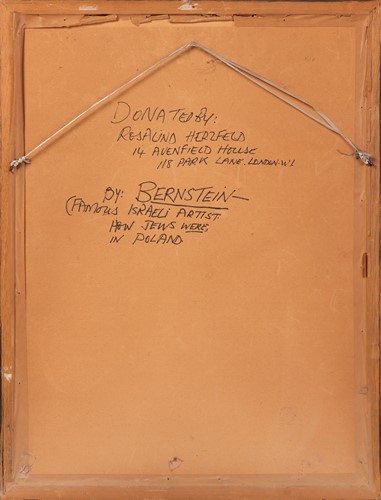 DONATED BY:
ROSALIND HERZFELD
14 AVENFIELD HOUSE
118 PARK LANE. LONDON. W1
BY: BERNSTEIN —
(FAMOUS ISRAELI ARTIST.
HOW JEWS WERE,
IN POLAND